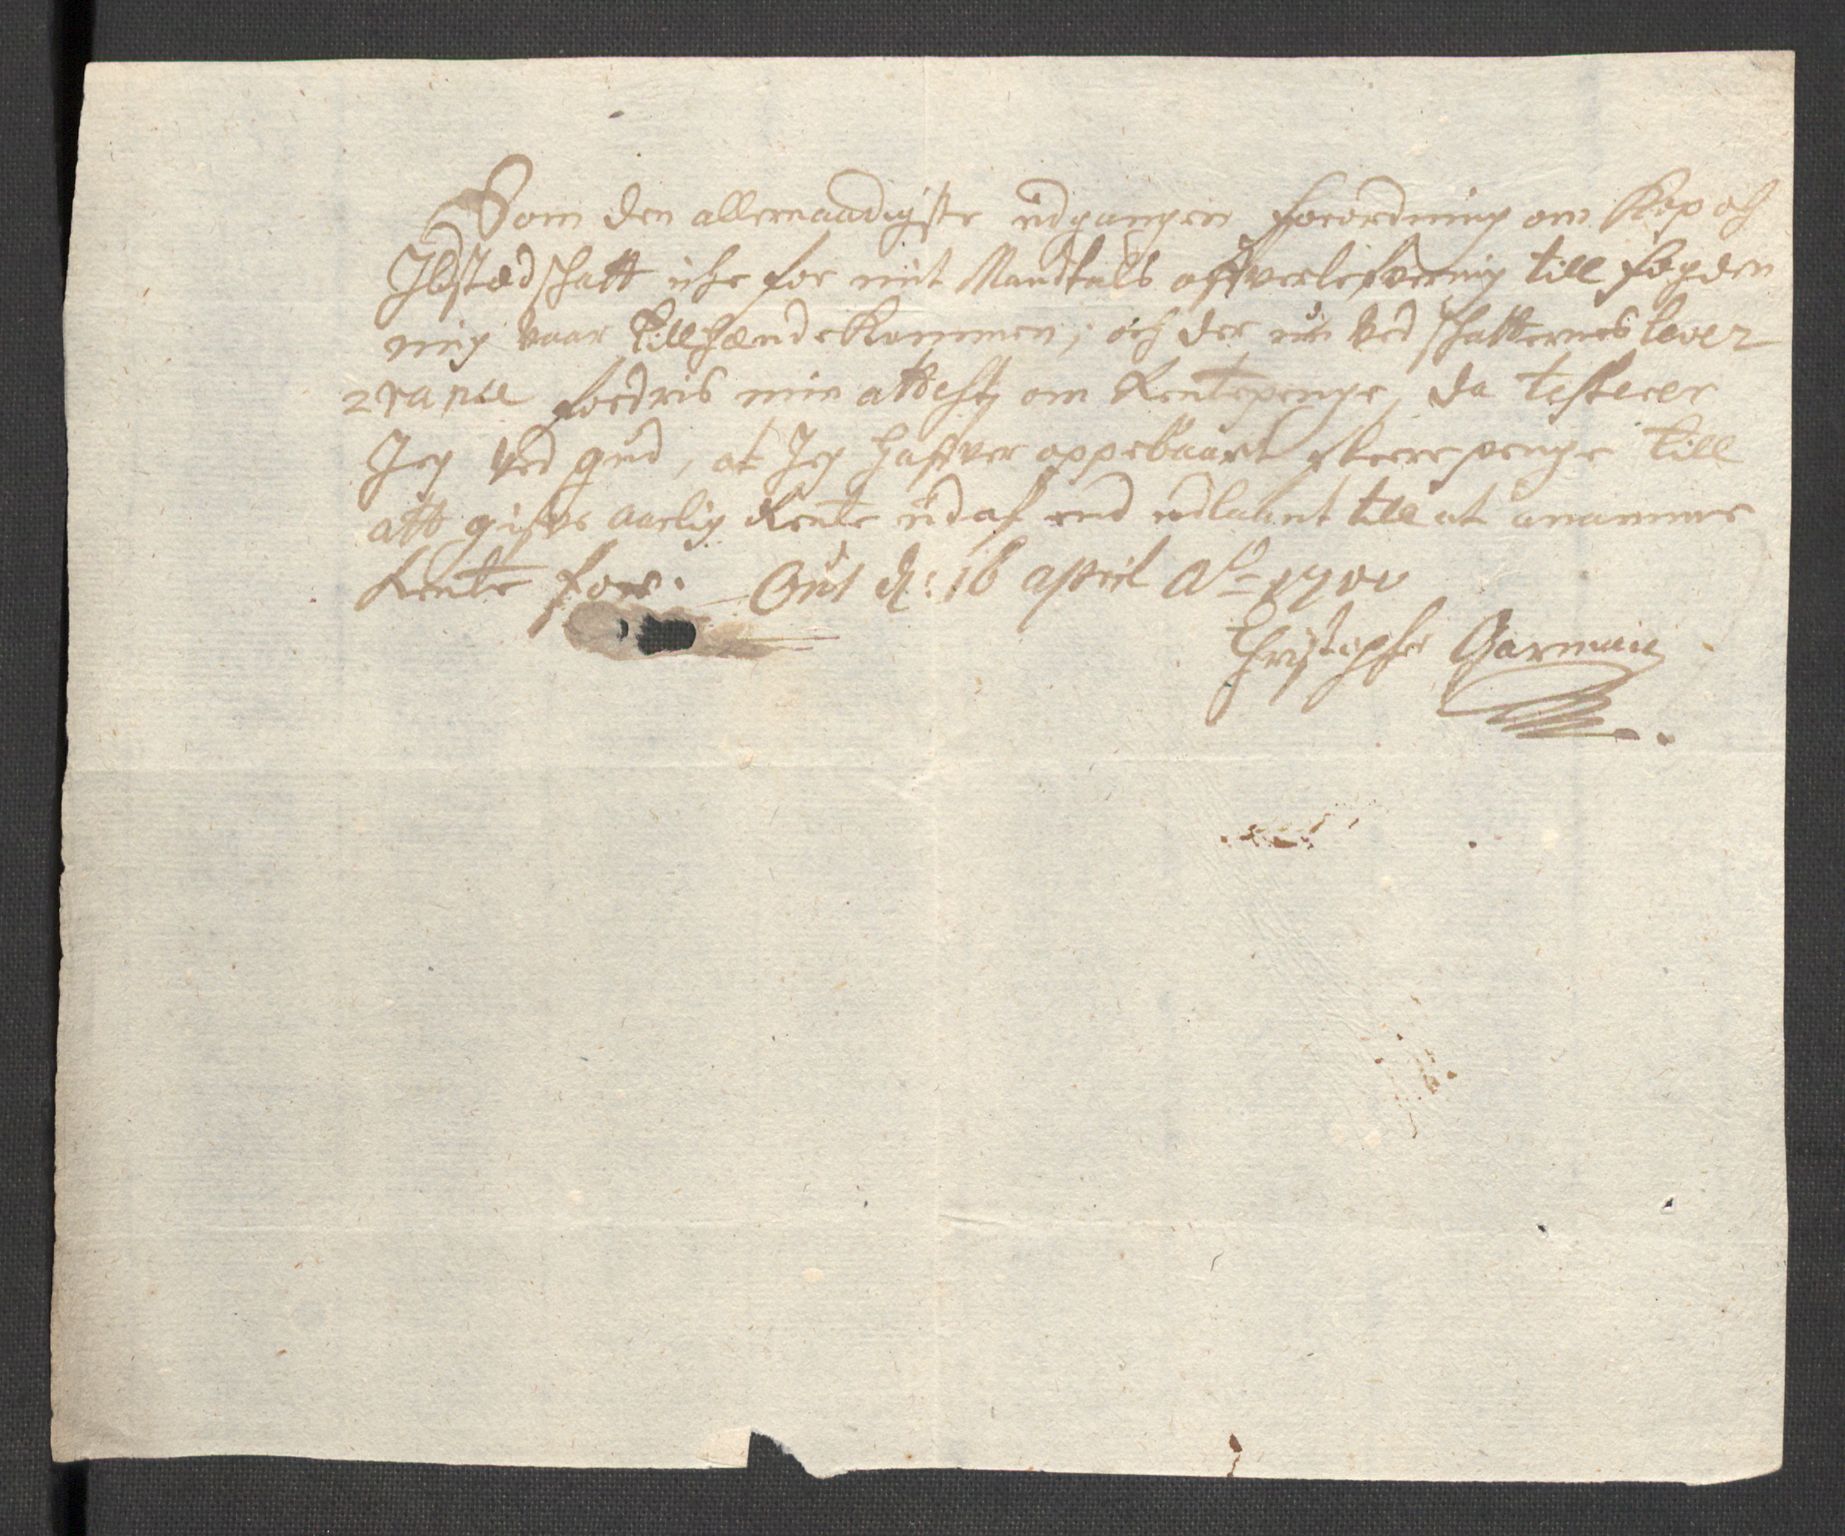 Som den allernaadigste üdgangen forordning om Kop och
Ildstædschatt iche for mit Mandtals offverlefvering till fogden
mig vaar tillhændeKommen, och der nu ved schatternes lever
rance fordris min attest om Rentepenge, da testerer
Jeg ved gud, at Jeg haffver oppebaaret penge till
att gifve aarlig Rente üdaf end udlaant till at anamme
Rente for. d: 16 april Ao 1701
Christopher Garman